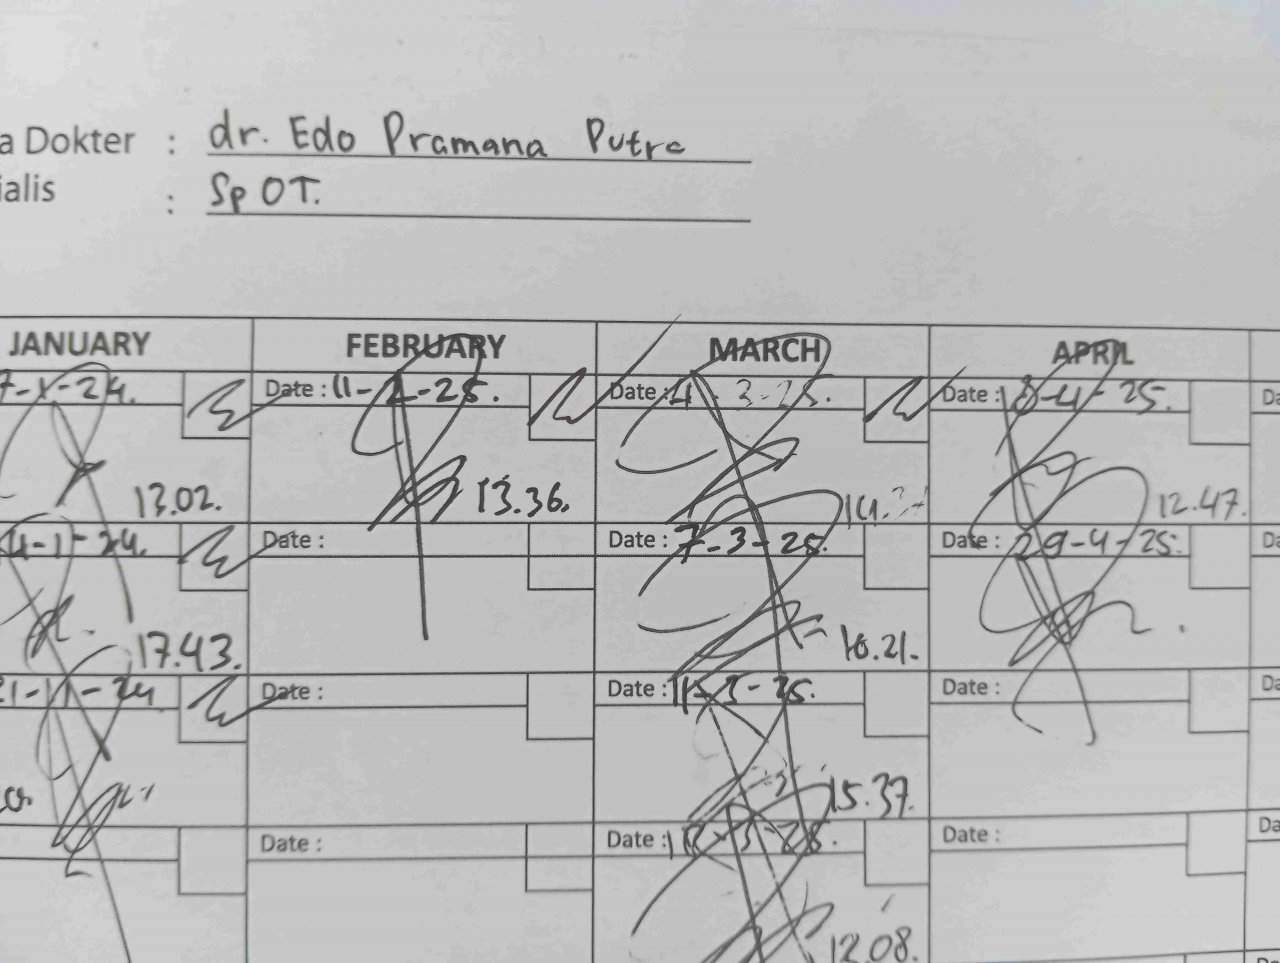 a Dokter : dr. Edo Pramana Putra
ialis : Sp OT.
JANUARY FEBRUARY MARCH APRIL
7-1-24. Date : 11-2-25. Date : 4-3-25. Date : 8-4-25. Da
13.02. 13.36. 12.47.
4-1-24. Date : Date : 7-3-25. Date : 29-4-25. Da
17.43. 10.21.
21-1-24 Date : Date : 11-3-25. Date : Da
15.37.
Date : Date : Date : Da
12.08.